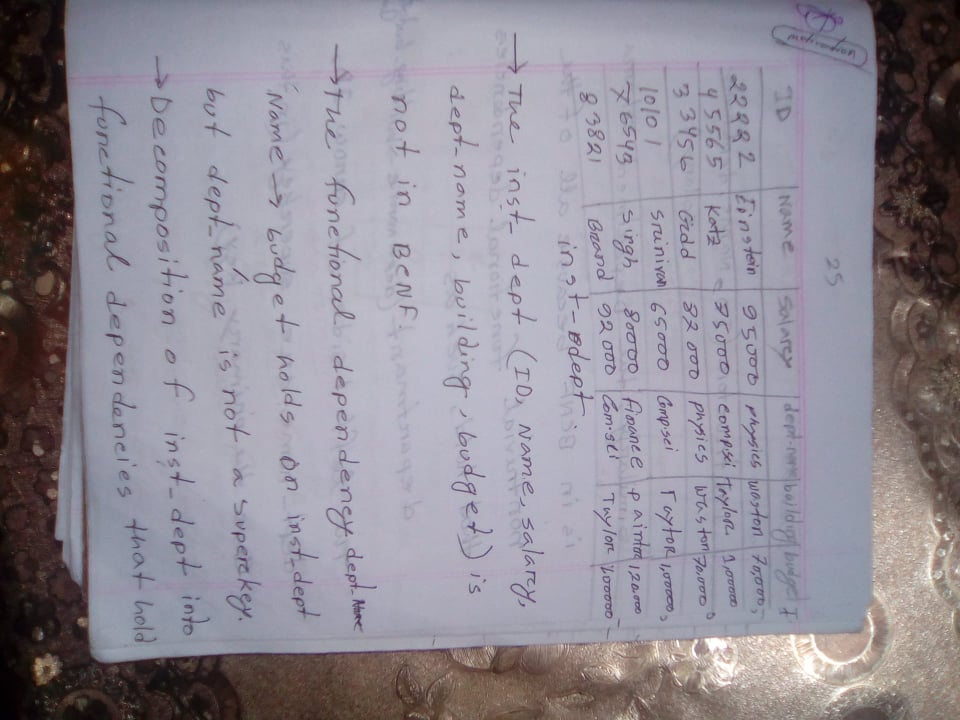 motivation
25
ID Name Salarey dept-name building budget
22222 Einstein 95000 physics waston 70,000,
45565 Katz 75000 comp.sci Taylor 1,00000
33456 Gold 87000 physics waston 70,000
10101 Srinivan 65000 Comp.sci Taytor 1,00000,
76543 Singh 80000 finance paintor 120.000
83821 Brand 92000 Com.sci Taylor 100000
inst-dept.
→ The inst_ dept (ID, Name, salarcy,
dept-name, building, budget) is
not in BCNF.
→ The functional dependency dept-
Name → budget holds on inst-dept
but dept_name is not a superekey.
→ Decomposition of inst_dept into
functional dependencies that hold